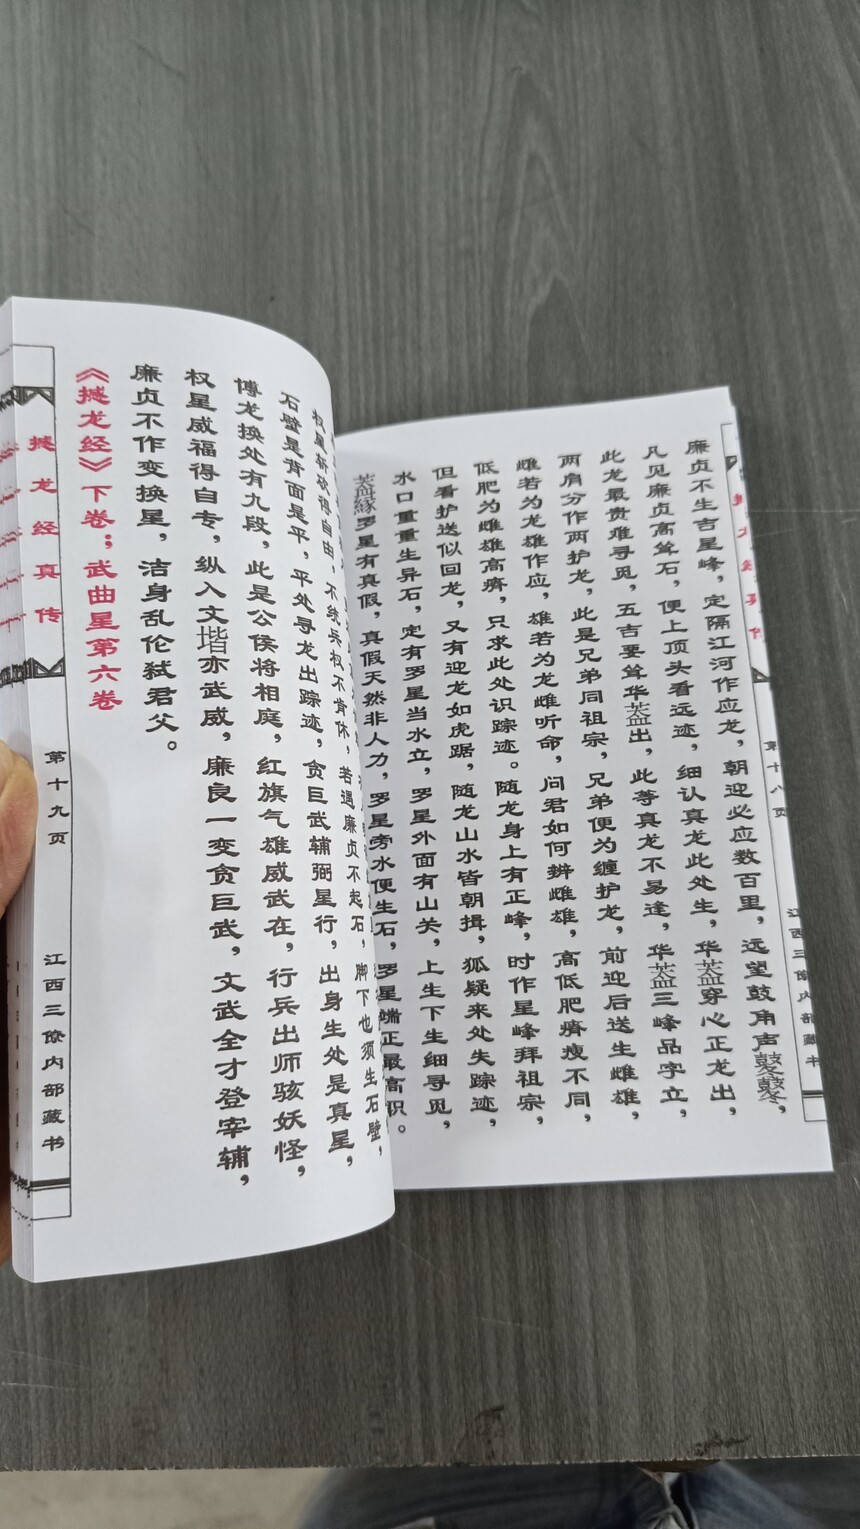 撼龙经真传
第十八页
江西三僚内部藏书
廉贞不生吉星峰，定隔江河作应龙，朝迎必应数百里，远望鼓角声鼕鼕，
凡见廉贞高耸石，便上顶头看远迹，细认真龙此处生，华葢穿心正龙出，
此龙最贵难寻觅，五吉要耸华葢出，此等真龙不易逢，华葢三峰品字立，
两肩分作两护龙，此是兄弟同祖宗，兄弟便为缠护龙，前迎后送生雌雄，
雌若为龙雄作应，雄若为龙雌听命，问君如何辨雌雄，高低肥癠瘦不同，
低肥为雌雄高癠，只求此处识踪迹。随龙身上有正峰，时作星峰拜祖宗，
但看护送似回龙，又有迎龙如虎踞，随龙山水皆朝揖，狐疑来处失踪迹，
水口重重生异石，定有罗星当水立，罗星外面有山关，上生下生细寻觅，
葢縁罗星有真假，真假天然非人力，罗星旁水便生石，罗星端正最高职。
权星斩砍得自由，不统兵权不肯休，若遇廉贞不起石，脚下也须生石壁，
石壁是背面是平，平处寻龙出踪迹，贪巨武辅弼星行，出身生处是真星，
傅龙换处有九段，此是公侯将相庭，红旗气雄威武在，行兵出师骇妖怪，
权星威福得自专，纵入文堦亦武威，廉良一变贪巨武，文武全才登宰辅，
廉贞不作变换星，洁身乱伦弑君父。
《撼龙经》下卷；武曲星第六卷
撼龙经真传
第十九页
江西三僚内部藏书